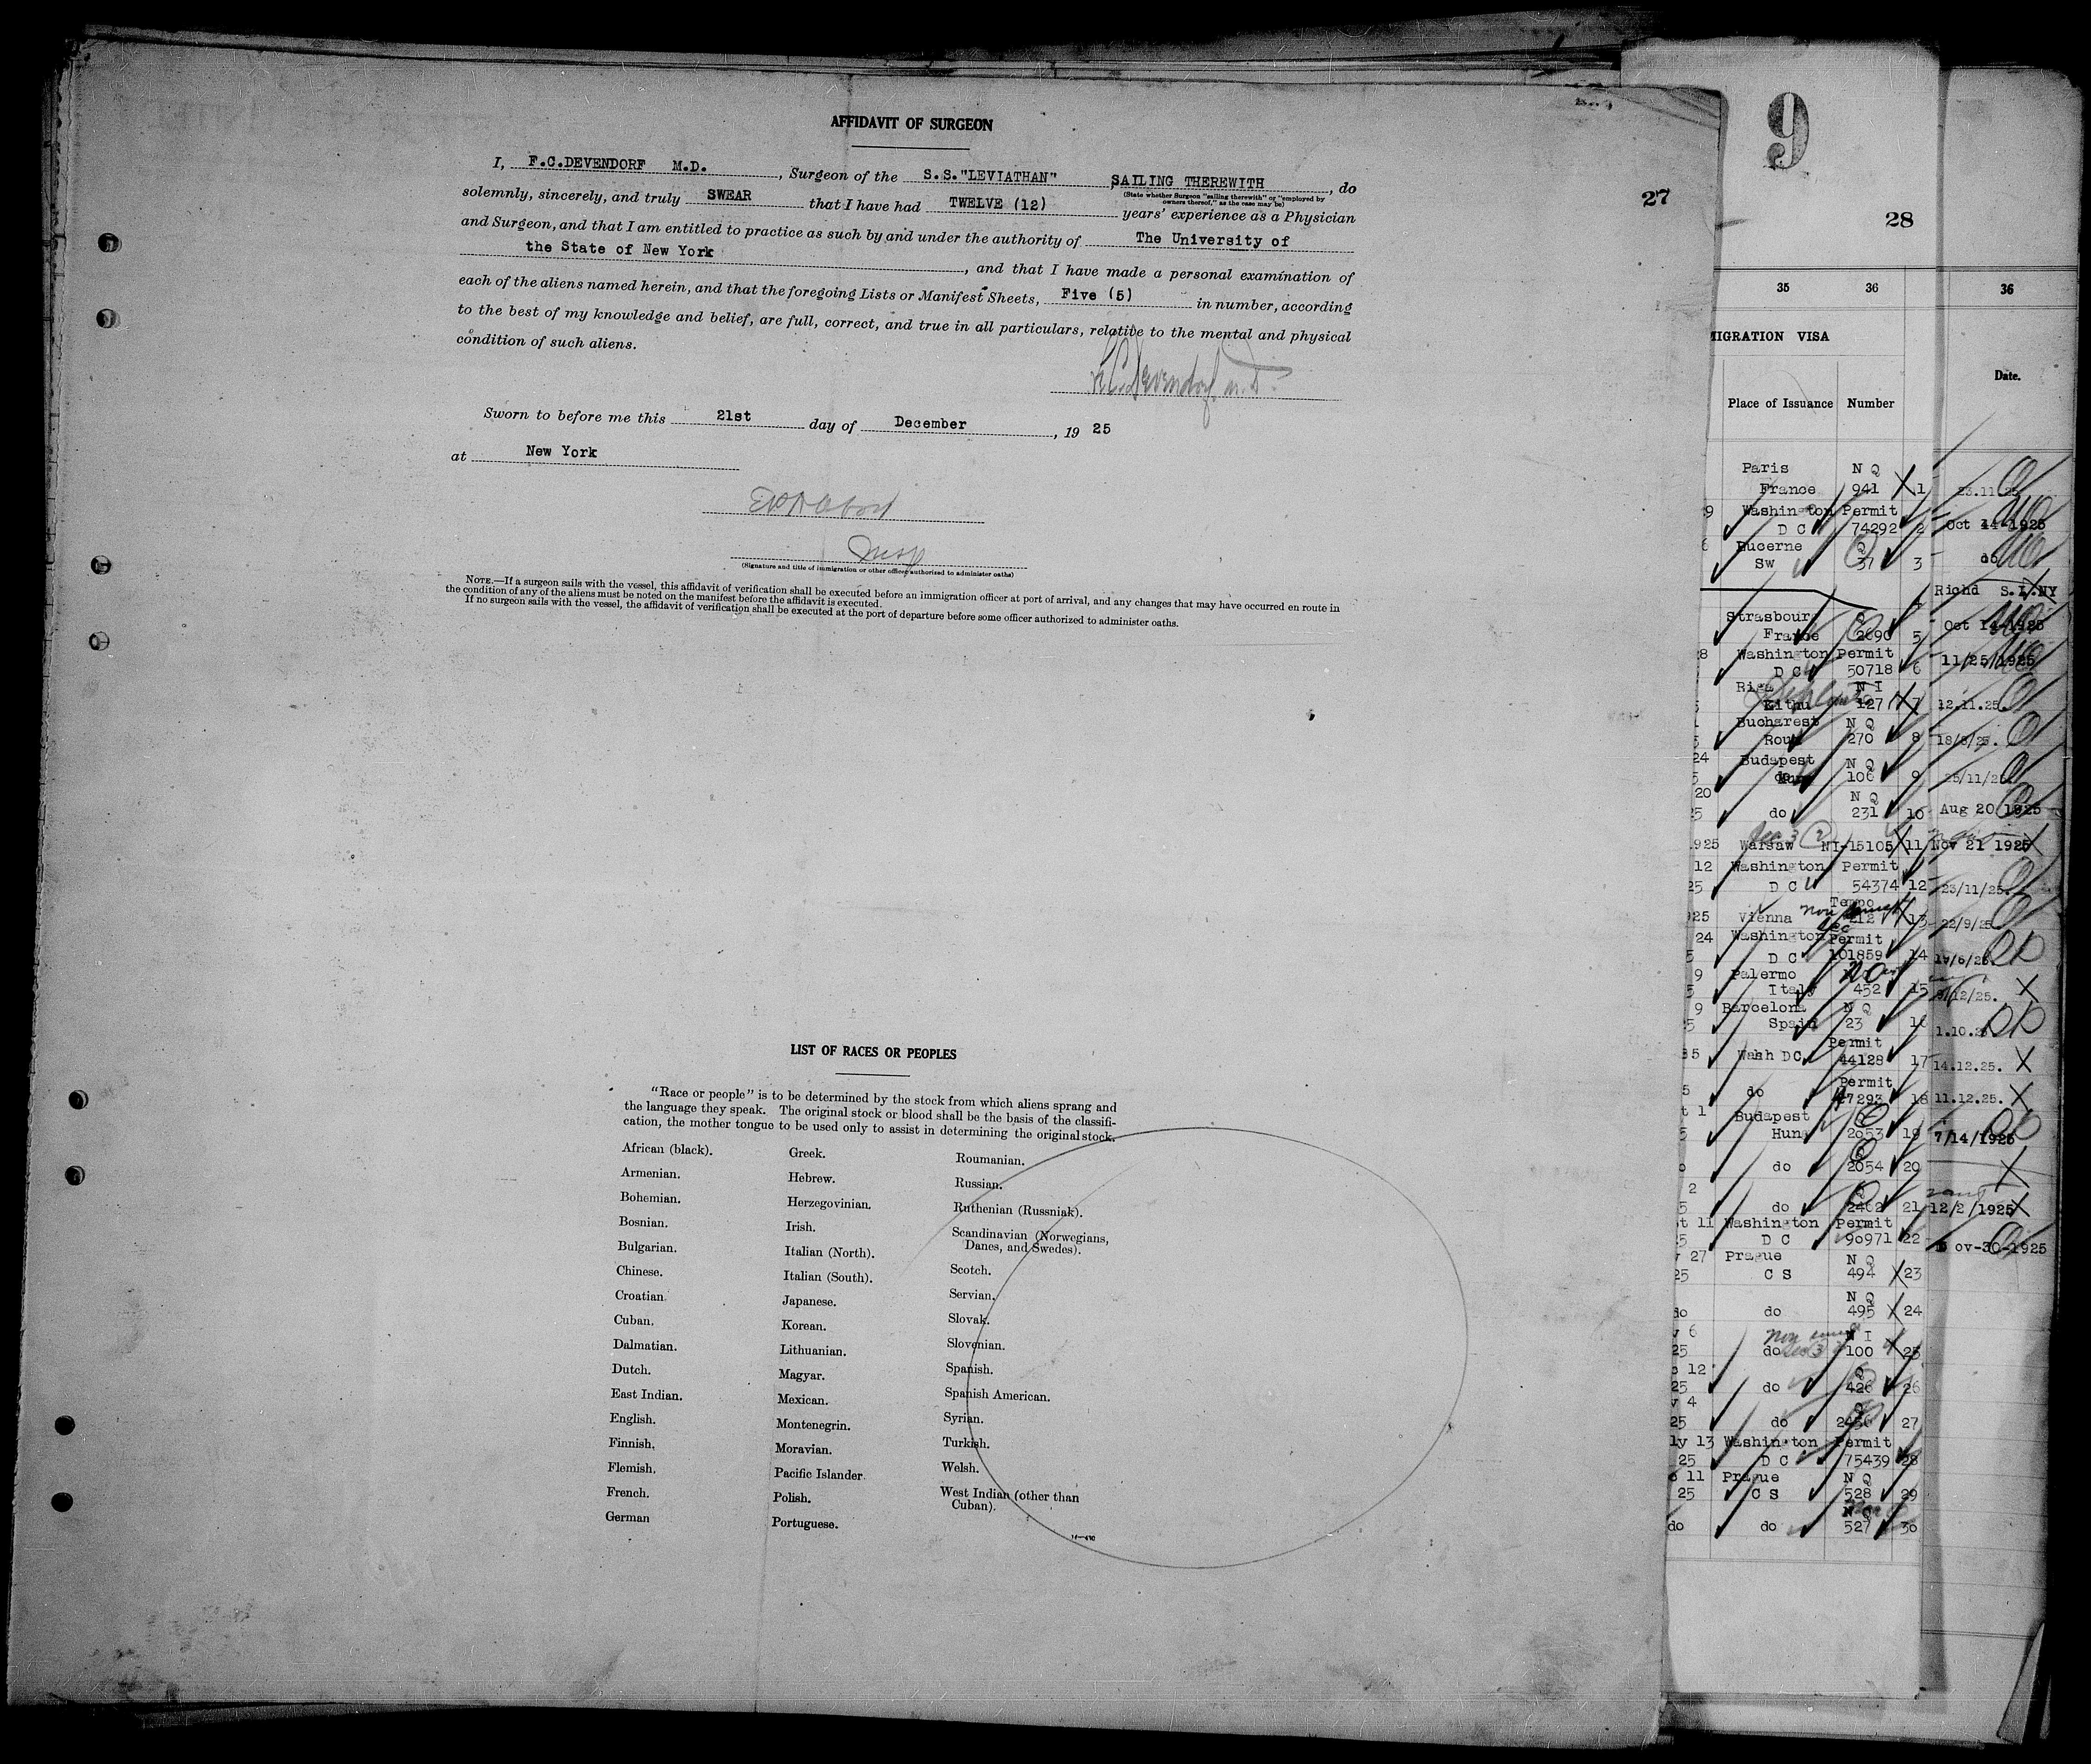 AFFIDAVIT OF SURGEON
I, F.C.DEVENDORF M.D. , Surgeon of the S.S."LEVIATHAN" SAILING THEREWITH , do
(State whether Surgeon "sailing therewith" or "employed by
owners thereof," as the case may be)
solemnly, sincerely, and truly SWEAR that I have had TWELVE (12) years' experience as a Physician
and Surgeon, and that I am entitled to practice as such by and under the authority of The University of
the State of New York , and that I have made a personal examination of
each of the aliens named herein, and that the foregoing Lists or Manifest Sheets, Five (5) in number, according
to the best of my knowledge and belief, are full, correct, and true in all particulars, relative to the mental and physical
condition of such aliens.
F.C. Devendorf M.D.
Sworn to before me this 21st day of December , 19 25
at New York
Insp
(Signature and title of immigration or other officer authorized to administer oaths)
NOTE.—If a surgeon sails with the vessel, this affidavit of verification shall be executed before an immigration officer at port of arrival, and any changes that may have occurred en route in
the condition of any of the aliens must be noted on the manifest before the affidavit is executed.
If no surgeon sails with the vessel, the affidavit of verification shall be executed at the port of departure before some officer authorized to administer oaths.
LIST OF RACES OR PEOPLES
"Race or people" is to be determined by the stock from which aliens sprang and
the language they speak. The original stock or blood shall be the basis of the classifi-
cation, the mother tongue to be used only to assist in determining the original stock.
African (black).
Armenian.
Bohemian.
Bosnian.
Bulgarian.
Chinese.
Croatian.
Cuban.
Dalmatian.
Dutch.
East Indian.
English.
Finnish.
Flemish.
French.
German
Greek.
Hebrew.
Herzegovinian.
Irish.
Italian (North).
Italian (South).
Japanese.
Korean.
Lithuanian.
Magyar.
Mexican.
Montenegrin.
Moravian.
Pacific Islander.
Polish.
Portuguese.
Roumanian.
Russian.
Ruthenian (Russniak).
Scandinavian (Norwegians,
Danes, and Swedes).
Scotch.
Servian.
Slovak.
Slovenian.
Spanish.
Spanish American.
Syrian.
Turkish.
Welsh.
West Indian (other than
Cuban).
27
9
28
35 36
MIGRATION VISA
Place of Issuance Number
Paris N Q
France 941 1
9 Washington Permit
D C 74292 2
Lucerne Q
Sw 37 3
Strasbour Q
France 2690 5
8 Washington Permit
D C 50718 6
Riga N I
Lithu 127 7
Bucharest N Q
Rou 270 8
24 Budapest N Q
5 106 9
20 N Q
5 do 231 10
Sec 3 (2)
1925 Warsaw NI-15105 11
12 Washington Permit
25 D C 54374 12
Tempo
925 Vienna 212 13
24 Washington Permit
5 D C 101859 14
9 Palermo
5 Italy 452 15
9 Barcelona N Q
5 Spain 23 16
Permit
Wash DC 44128 17
Permit
5 do 18
t 1 Budapest Q
5 Hun 2053 19
Q
do 2054 20
2 Q
5 do 2402 21
t 11 Washington Permit
25 D C 90971 22
v 27 Prague N Q
25 C S 494 23
N Q
do do 495 24
v 6 N I
25 do 100 25
12 Q
25 do 426 26
v 4 Q
25 do 27
ly 13 Washington Permit
25 D C 75439 28
11 Prague N Q
25 C S 528 29
N Q
do do 527 30
36
Date.
23.11.25
Oct 14-1925
do
Richd S.I.NY
Oct 14-1925
11/25/1925
12.11.25.
18/8/25.
25/11/25
Aug 20 1925
Nov 21 1925
23/11/25.
22/9/25
19/6/25.
9/12/25.
1.10.25
14.12.25.
11.12.25.
7/14/1925
12/2/1925
ov-30-1925